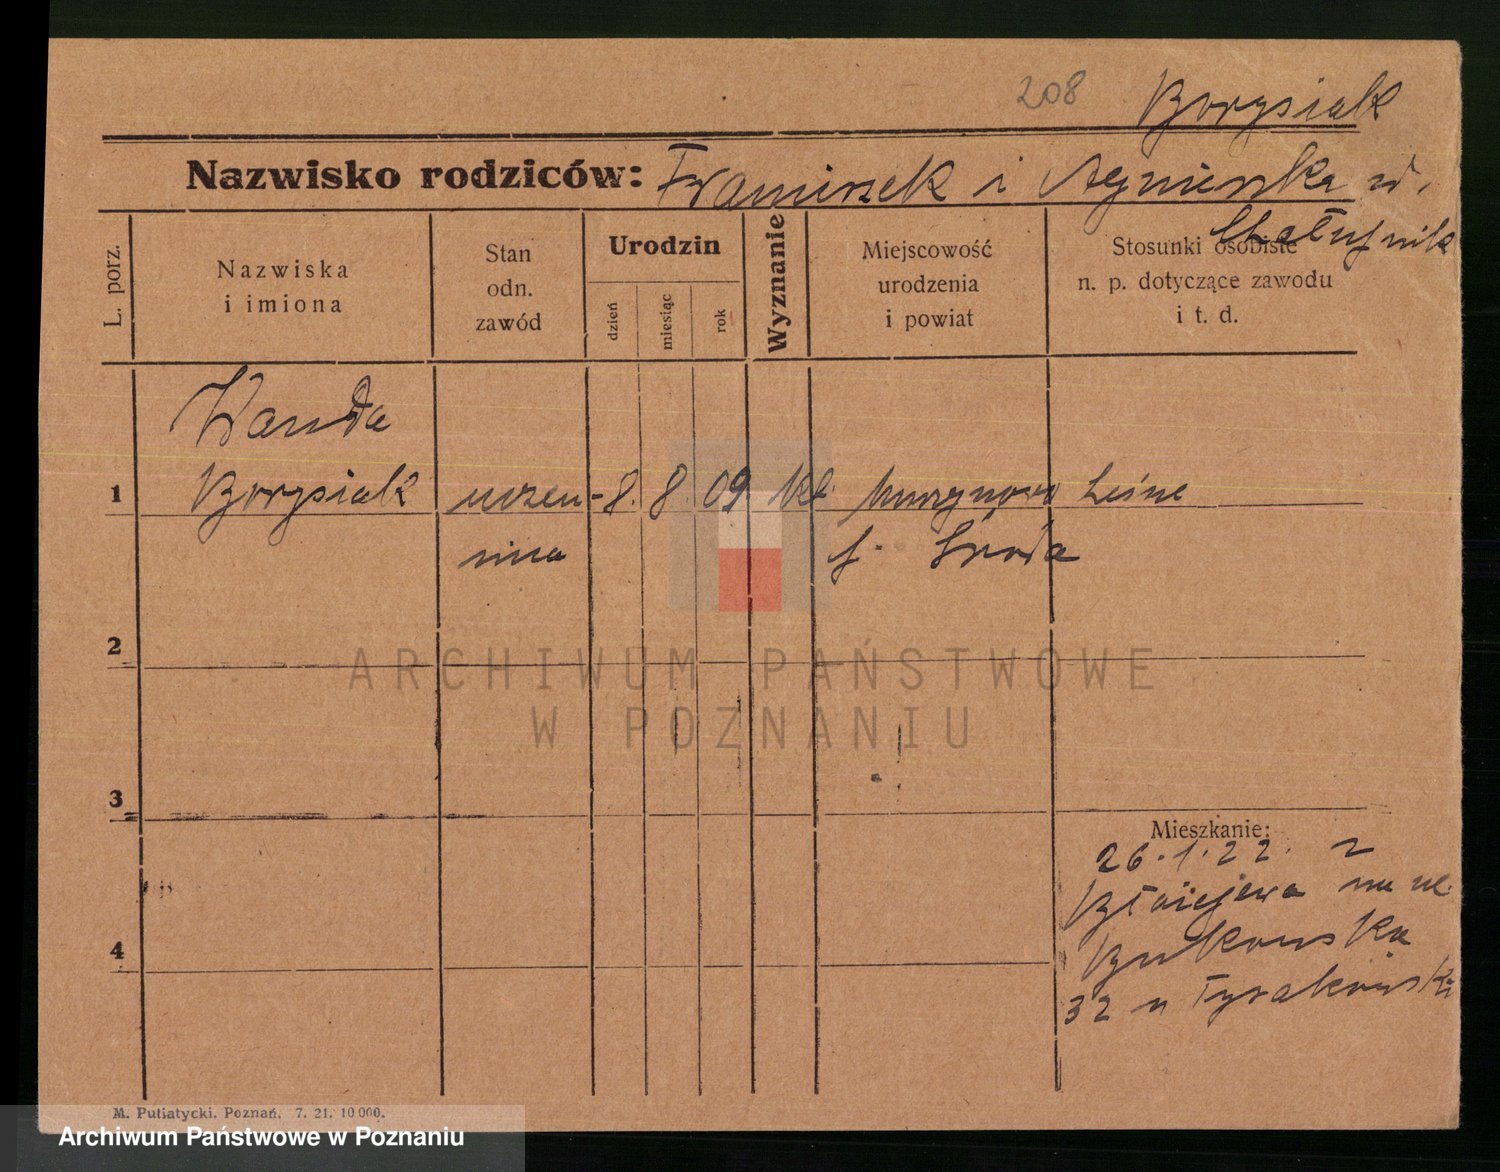 208 Borysiak
Nazwisko rodziców: Franciszek i Agnieszka
Chałupnik
L. porz.
Nazwiska
i imiona
Stan
odn.
zawód
Urodzin
dzień
miesiąc
rok
Wyznanie
Miejscowość
urodzenia
i powiat
Stosunki osobiste
n. p. dotyczące zawodu
i t. d.
Wanda
1 Borysiak uczen- 8. 8 09 kt. Murzynowo Leśne
nica
p. Środa
2
3
4
Mieszkanie:
26.1.22. z
Błażejewa na ul.
Bukowska
32 u
ARCHIWUM PAŃSTWOWE
W POZNANIU
M. Putiatycki. Poznań. 7. 21. 10 000.
Archiwum Państwowe w Poznaniu